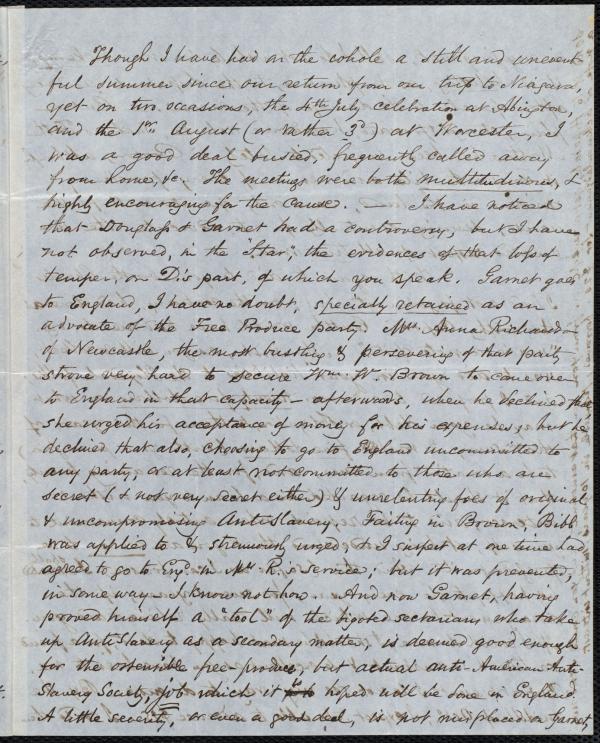 Though I have had on the whole a still and unevent-
ful summer since our return from our trip to Niagara,
yet on two occasions, the 4th July celebration at Abington,
and the 1st August (or rather 3d) at Worcester, I
was a good deal busied, frequently called away
from home, &c. The meetings were both multitudinous, &
highly encouraging for the cause. — I have noticed
that Douglass & Garnet had a controversy, but I have
not observed, in the "Star", the evidences of that loss of
temper, on D's part, of which you speak. Garnet goes
to England, I have no doubt, specially retained as an
advocate of the Free Produce party. Mrs. Anna Richardson
of Newcastle, the most bustling & persevering of that party
strove very hard to secure Wm. W. Brown to come over
to England in that capacity – afterwards, when he declined that,
she urged his acceptance of money for his expenses; but he
declined that also, choosing to go to England uncommitted to
any party, or at least not committed to those who are
secret (& not very secret either) & unrelenting foes of original
& uncompromising AntiSlavery. Failing in Brown, Bibb
was applied to & strenuously urged, & I suspect at one time had
agreed to go to Engd. in Mrs R.'s service; but it was prevented,
in some way I know not how. And now Garnet, having
proved himself a "tool" of the bigoted sectarians who take
up AntiSlavery as a secondary matter, is deemed good enough
for the ostensible free-produce, but actual anti-American Anti-
Slavery Society, job which it is hoped will be done in England.
A little severity, or even a good deal, is not misplaced on Garnet,